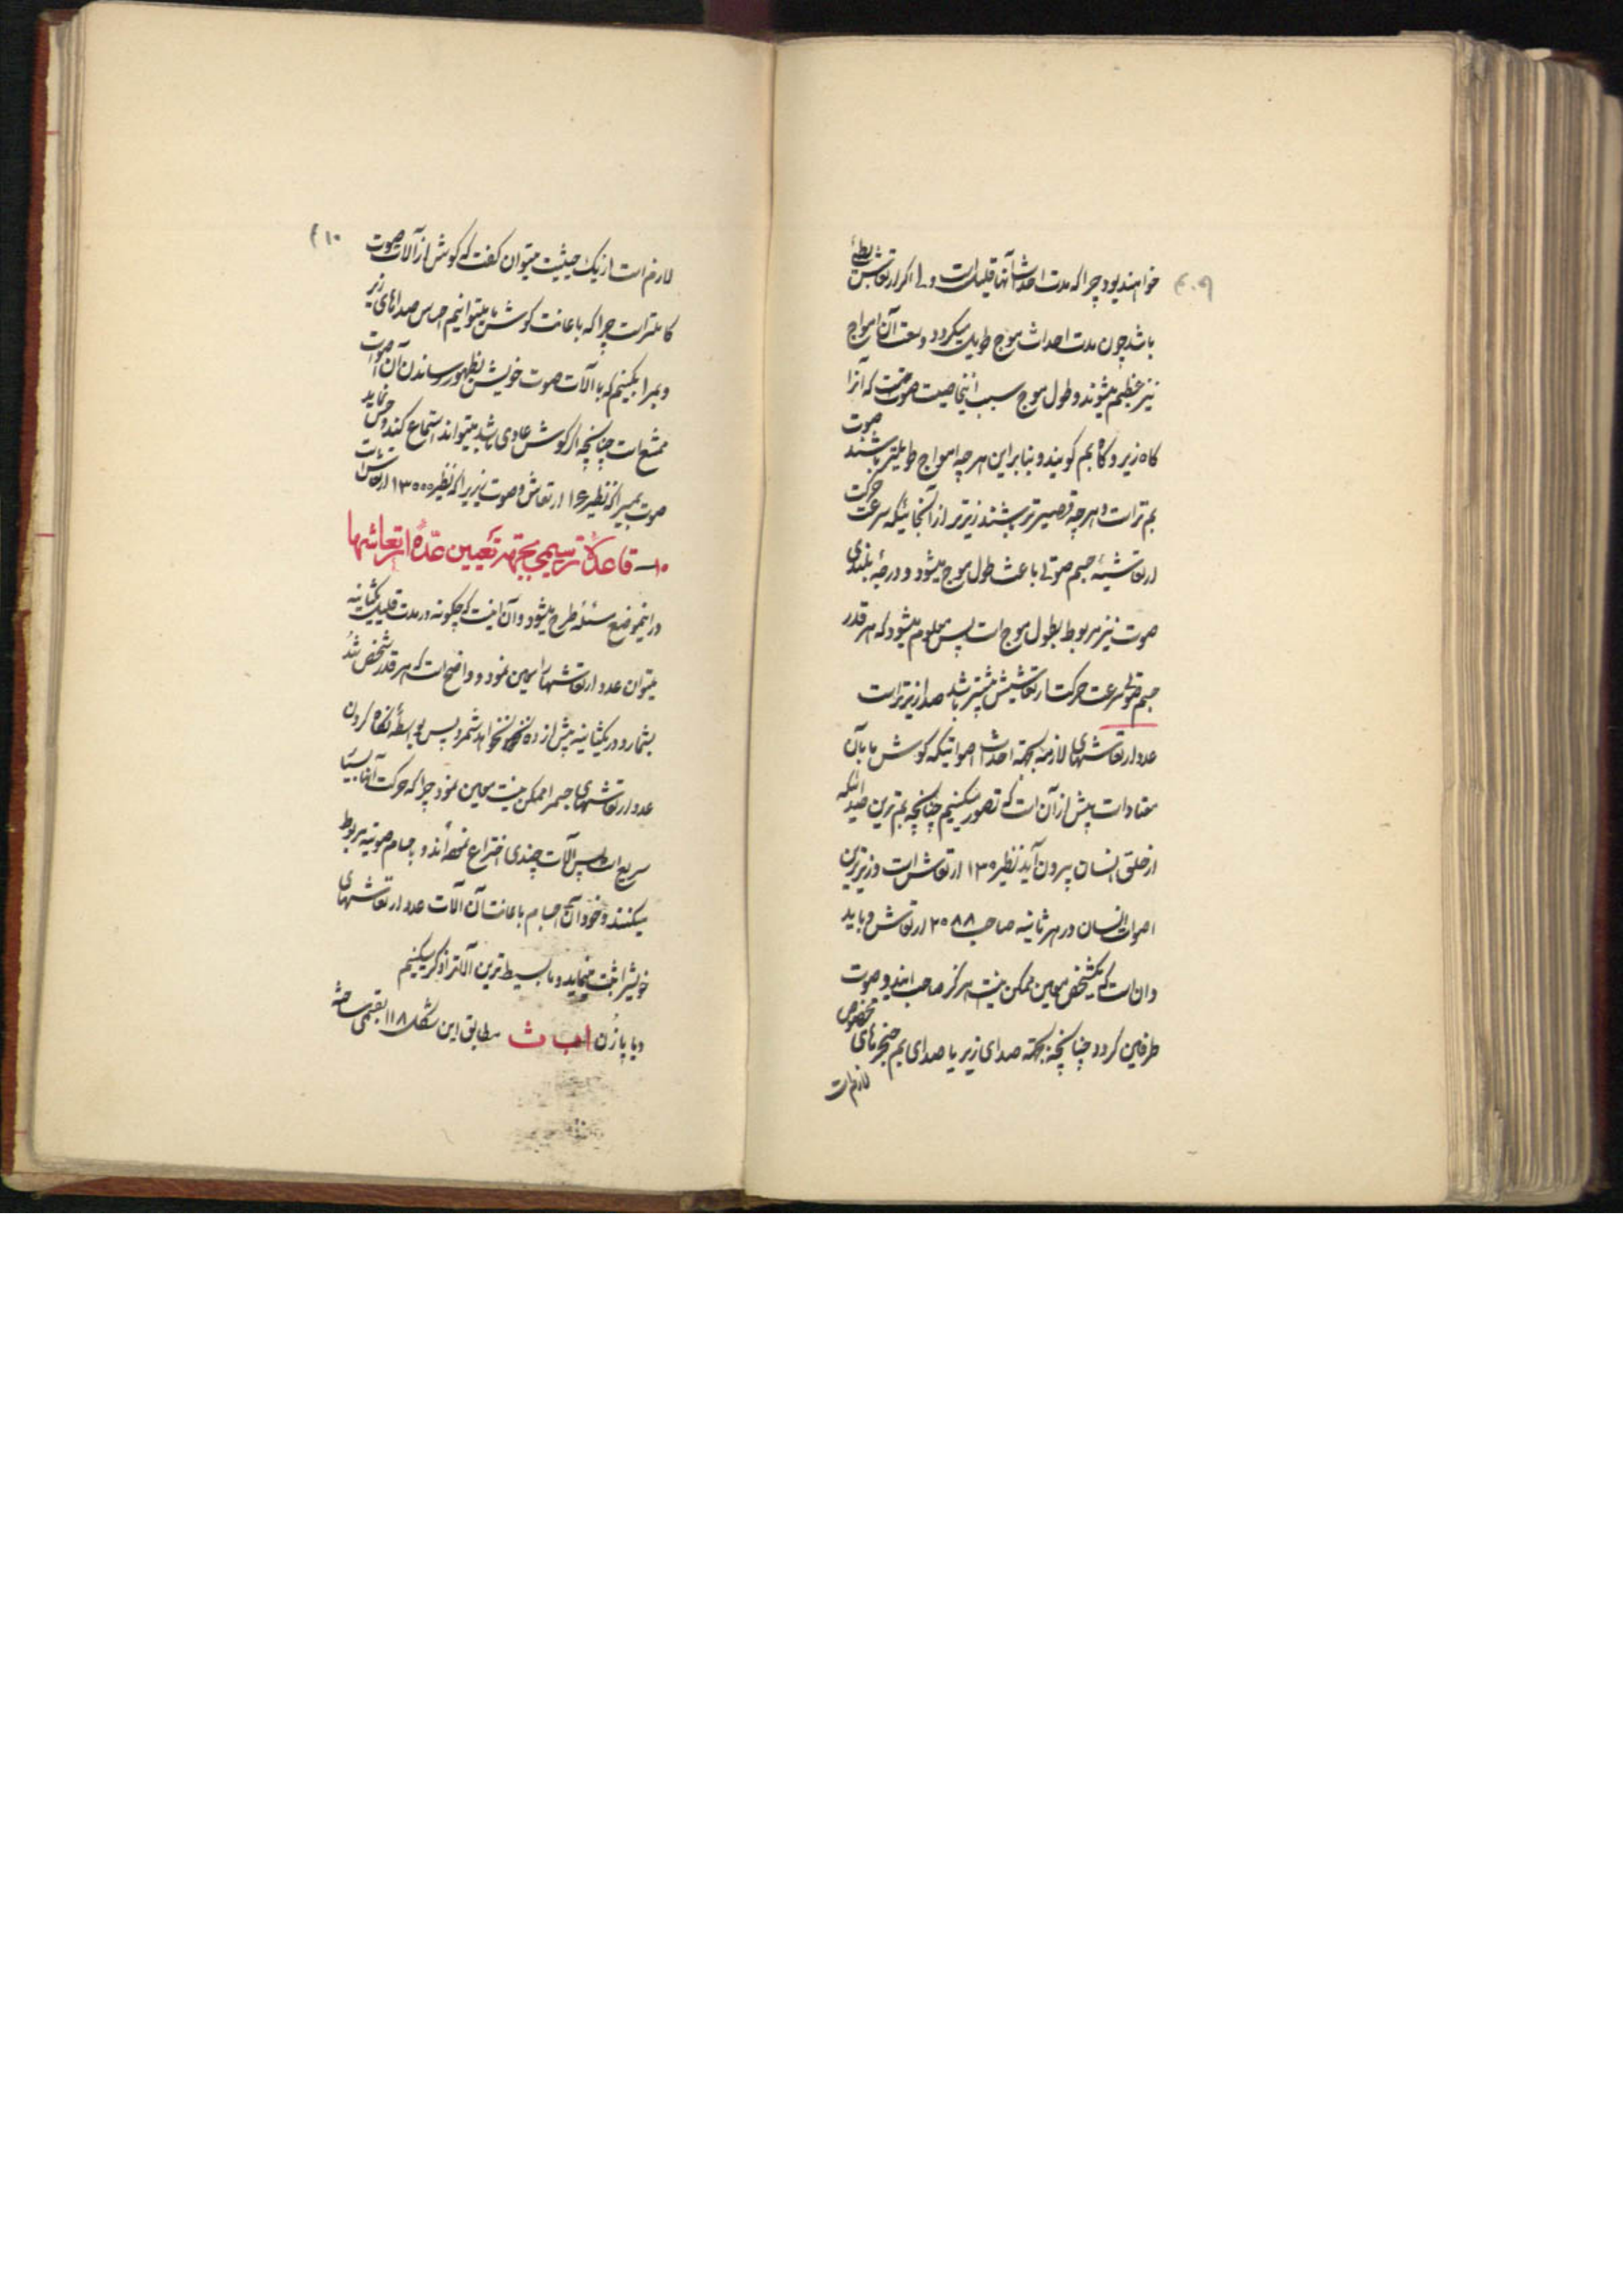 ۴۰۹
خواهند بود چرا که مدت احداث آنها قلیل است ولی اگر ارتعاش بطئ
باشد چون مدت احداث موج طویل میگردد وسعت آن امواج
نیز عظیم میشوند و طول موج سبب اینخاصیت صوت است که آنرا
گاه زیر و گاه بم گویند و بنابراین هر چه امواج طویلتر باشند صوت
بم تر است و هر چه قصیرتر باشند زیرتر از آنجائیکه سرعت حرکت
ارتعاشیه جسم صوتی باعث طول موج میشود و درجهٔ بلندی
صوت نیز مربوط بطول موج است پس معلوم میشود که هر قدر
جسم صوتی سرعت حرکت ارتعاشیش بیشتر باشد صدا زیرتر است
عدد ارتعاشهای لازمه بجهته احداث اصواتیکه گوش ما بآن
معتاد است بیش از آن است که تصور میکنیم چنانچه بم ترین صدائیکه
از حلق انسان بیرون آید نظیر ۱۳۰ ارتعاش است و زیرترین
اصوات انسان در هر ثانیه صاحب ۲۰۸۸ ارتعاش و باید
دانست که یکشخص معین ممکن نیست هرگز صاحب ایندو صوت
طرفین گردد چنانچه بجهته صدای زیر یا صدای بم حنجرهای مخصوص
لازم است
۴۱۰
لازم است از یک حیثیت میتوان گفت که گوش از آلات صوت
کاملتر است چرا که باعانت گوش ما میتوانیم احساس صداهای زیر
و بمرا بکنیم که با آلات صوت خویش بظهور رساندن آن اصوات
ممتنع است چنانچه اگر گوش عادی باشد میتواند استماع کند و حس نماید
صوت بمیرا که نظیر ۱۶ ارتعاش و صوت زیریرا که نظیر ۱۳۰۰۰ ارتعاش است
۱۰ــ قاعدهٔ ترسیمی بجهته تعیین عدهٔ ارتعاشها
در اینموضع مسئله طرح میشود و آن اینست که چگونه در مدت قلیل یکثانیه
میتوان عدد ارتعاشها را معین نمود و واضح است که هر قدر شخص تند
بشمارد در یکثانیه بیش از ده نخواهد شمرد پس بواسطهٔ نگاه کردن
عدد ارتعاشهای جسمرا ممکن نیست معین نمود چرا که حرکت آنها بسیا
سریع است پس آلات چندی اختراع نموده‌اند و باجسام صوتیه مربوط
میکنند و خود آن اجسام باعانت آن آلات عدد ارتعاشهای
خویشرا ثبت مینماید و ما بسیط ترین آلاترا ذکر میکنیم
دیاپازن ا ب ث مطابق این شکل ۱۱۸ بقسمی ساخته